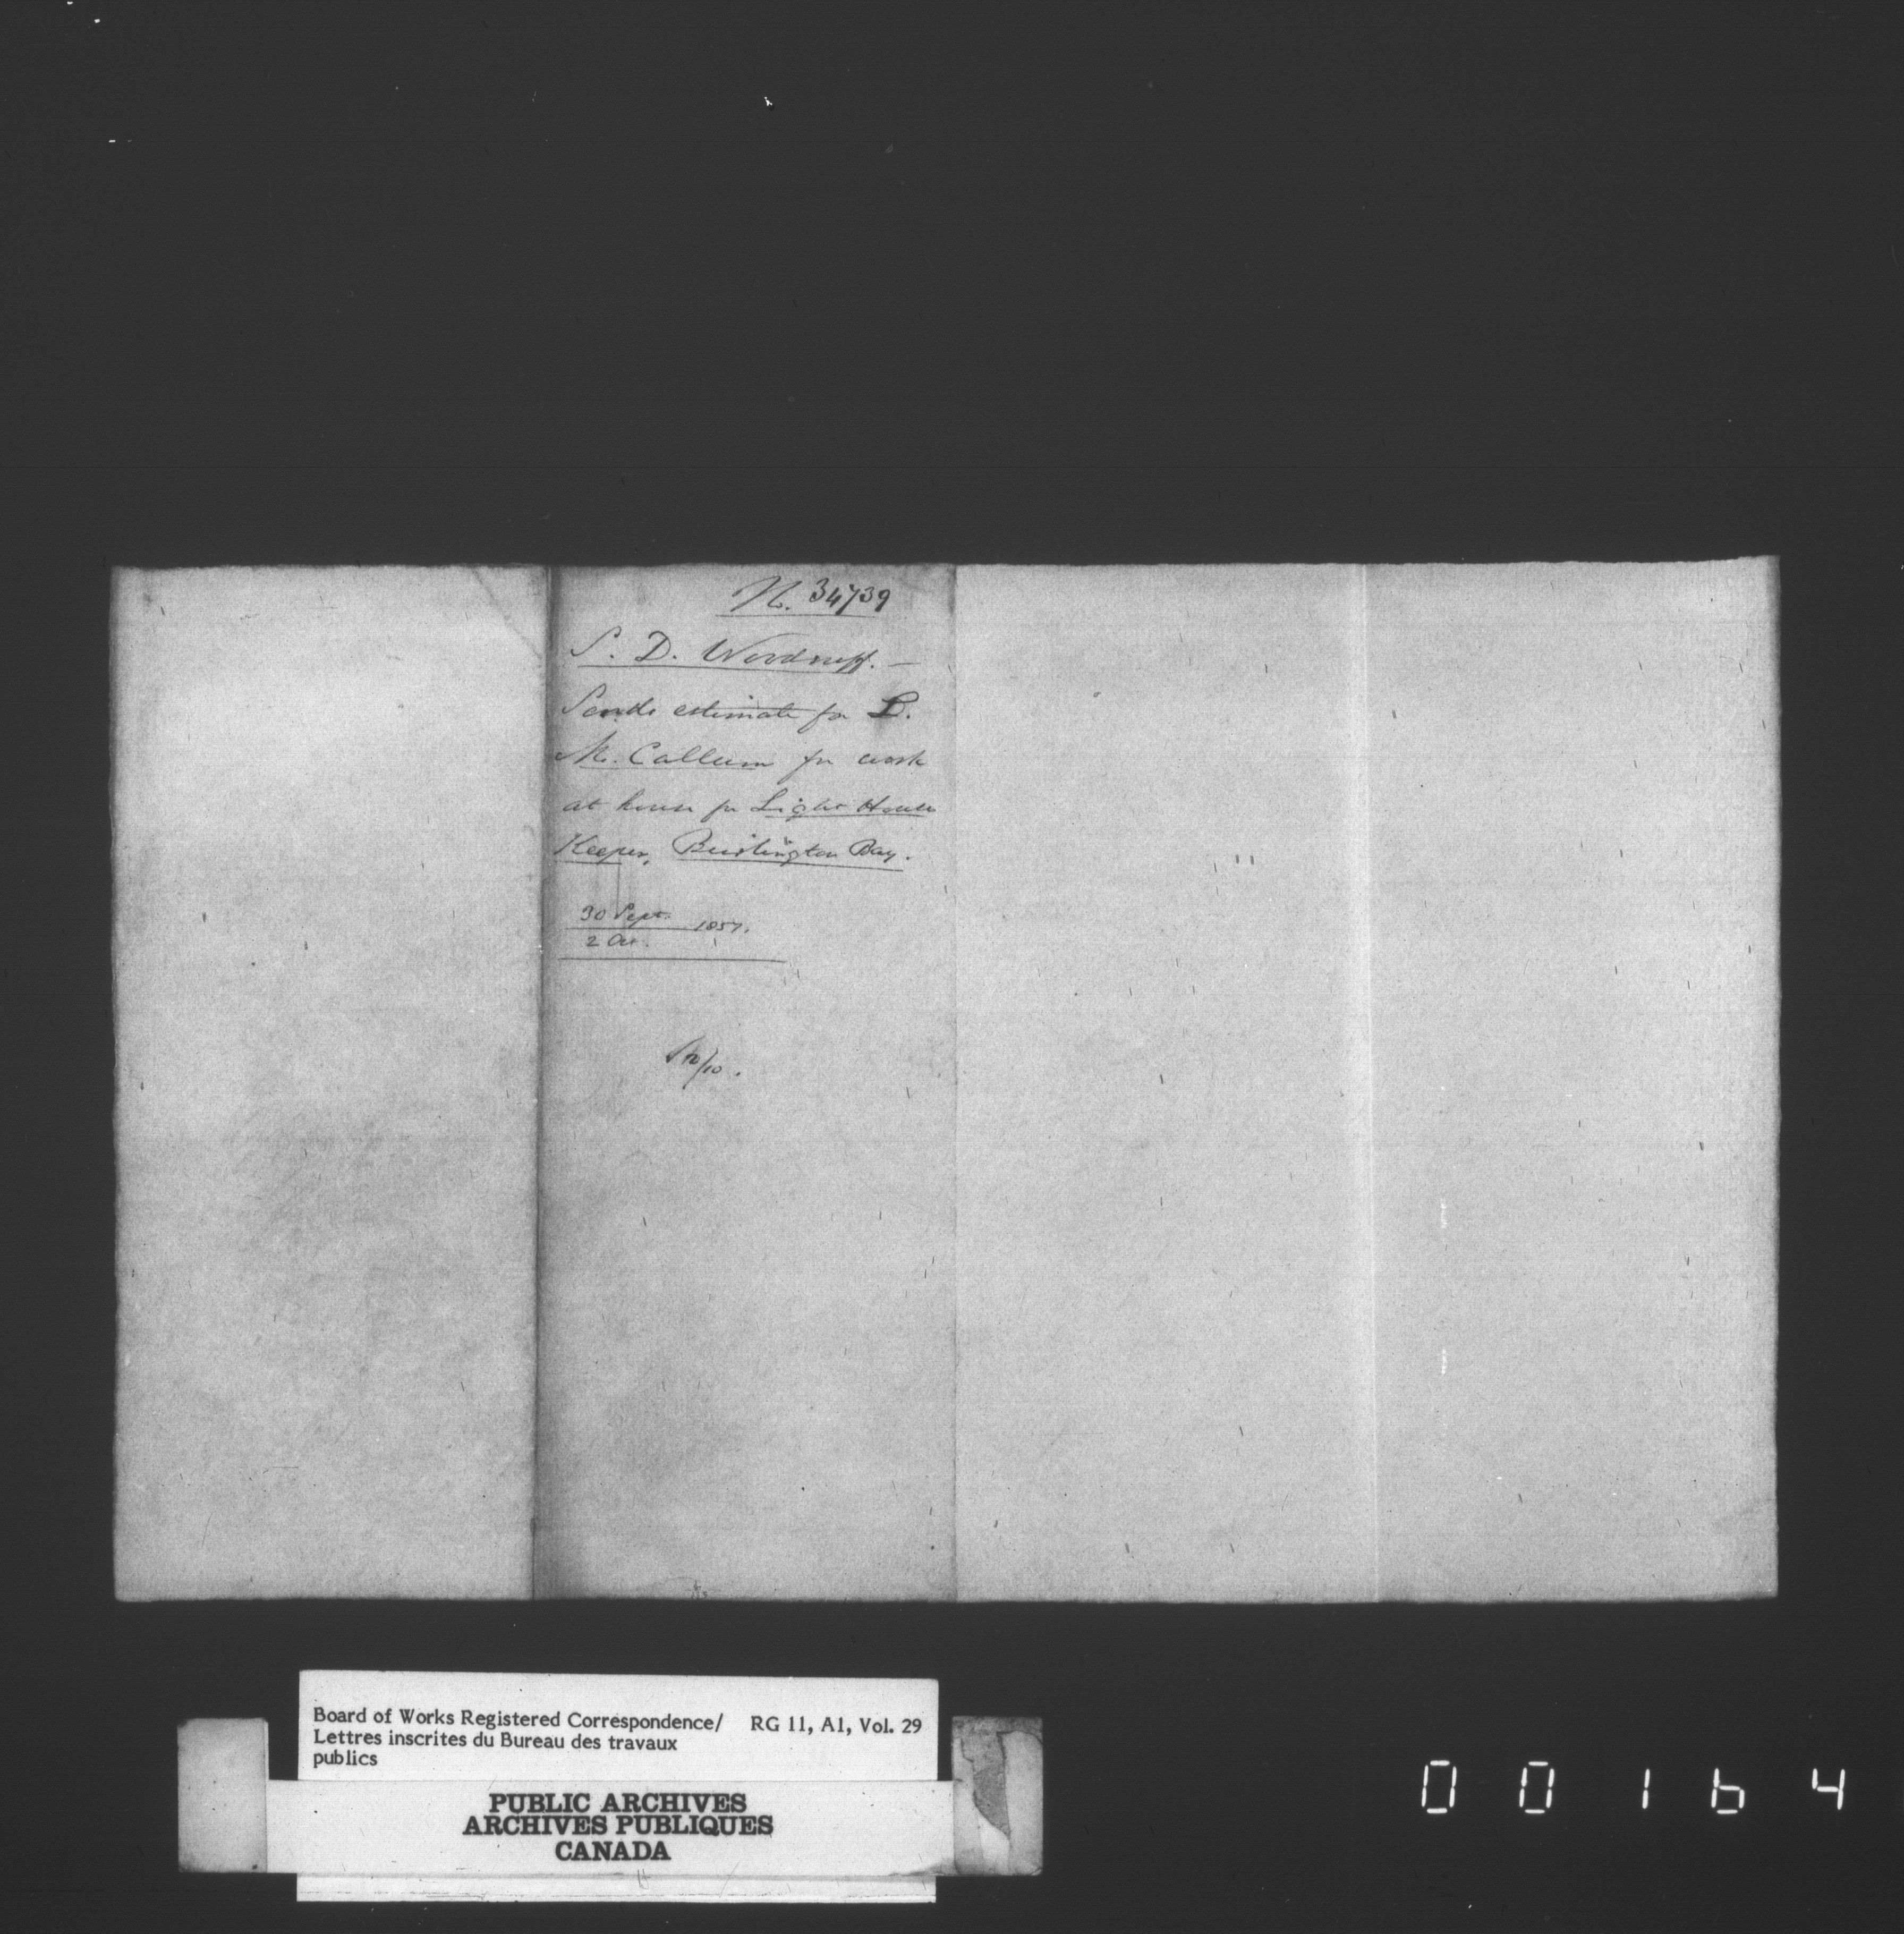 No. 34739
S. D. Woodruff. —
Sends estimate for L.
McCallum for work
at house for Light House
Keeper, Burlington Bay.
30 Sept. 1857.
2 Oct.
Board of Works Registered Correspondence/ RG 11, A1, Vol. 29
Lettres inscrites du Bureau des travaux
publics
PUBLIC ARCHIVES
ARCHIVES PUBLIQUES
CANADA
00164